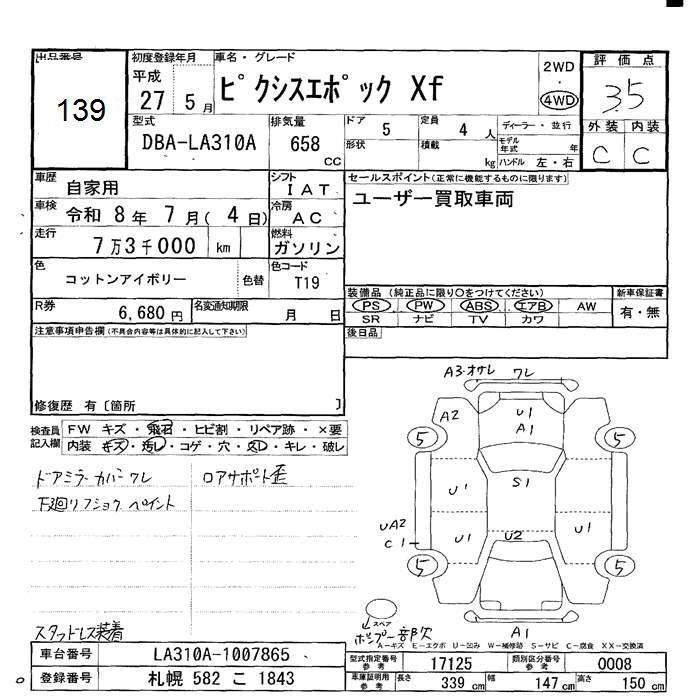 出品番号
139
初度登録年月
平成
27 5月
車名・グレード
ピクシスエポック Xf
2WD
・
4WD
評価点
3.5
外装 内装
C C
型式
DBA-LA310A
排気量
658 CC
ドア 5
定員 4 人
形状
積載 kg
ディーラー・並行
モデル年式 年
ハンドル 左・右
車歴 自家用
シフト IAT
車検 令和 8年 7月( 4日)
冷房 AC
走行 7万3千000 km
燃料 ガソリン
色 コットンアイボリー 色替
色コード T19
R券 6,680円
名変通知期限 月 日
セールスポイント(正常に機能するものに限ります)
ユーザー買取車両
装備品(純正品に限り○をつけてください)
PS PW ABS エアB AW
SR ナビ TV カワ
新車保証書
有・無
後日品
注意事項申告欄(不具合内容等は具体的に記入して下さい)
修復歴 有〔箇所 〕
検査員記入欄
FW キズ・飛石・ヒビ割・リペア跡・×要
内装 キズ・汚レ・コゲ・穴・スレ・キレ・破レ
ドアミラーカバーワレ
ロアサポート歪
下廻りフショク ペイント
スタッドレス装着
A3・オサレ ワレ
A2
U1
A1
5 5
S1
U1
UA2
C1
U1
U1
U2
5 5
スペア
ホンプー部欠
A1
A-キズ E-エクボ U-凹み W-補修跡 S-サビ C-腐食 XX-交換済
車台番号 LA310A-1007865
登録番号 札幌 582 こ 1843
型式指定番号 参考 17125
類別区分番号 参考 0008
車庫証明用 参考 長さ 339 cm 幅 147 cm 高さ 150 cm